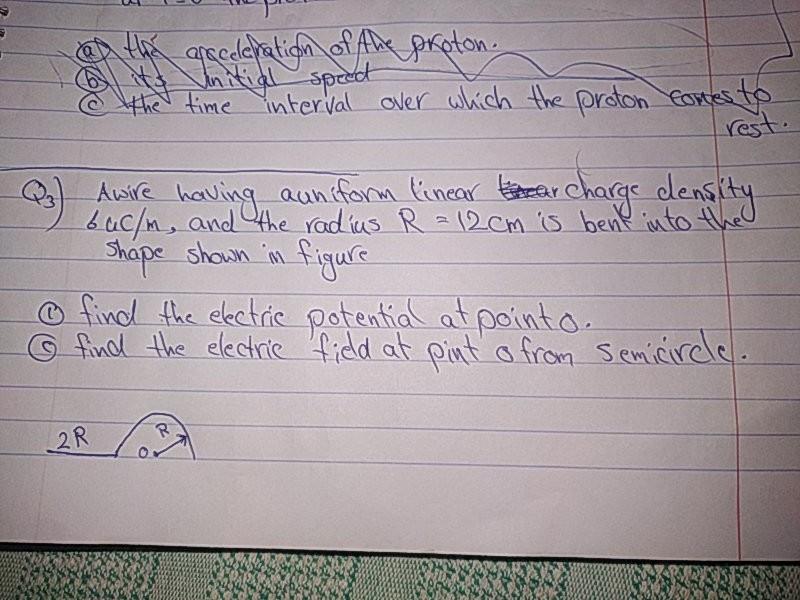 (a) the acceleration of the proton.
(b) its initial speed
(c) the time interval over which the proton comes to
rest.
Q3) A wire having a uniform linear charge density
6 uC/m, and the radius R = 12 cm is bent into the
shape shown in figure
find the electric potential at point o.
find the electric field at pint o from semicircle.
2R
R
o